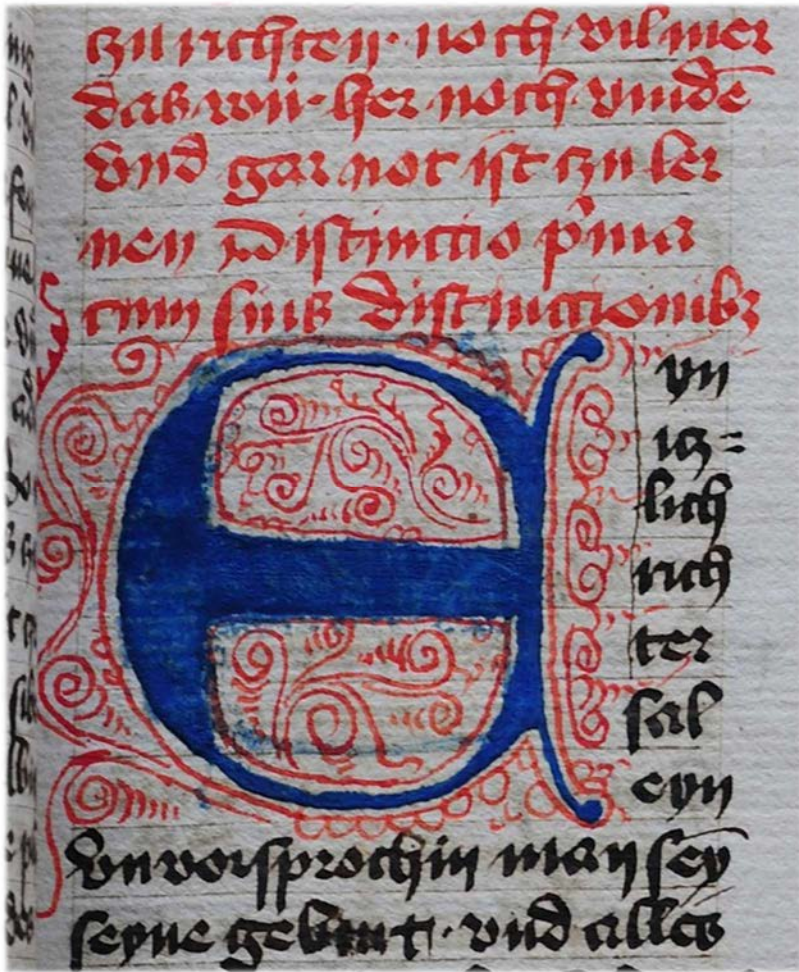 czu richten · noch vil mer
das wir · her noch vindē
vnd gar not ist czu ler
nen Distinctio p'ma
cum suis distinctionibꝫ
Eyn
icz=
lich
rich
ter
sal
eyn
vnvorsprochin man sey
seyne geburt · vnd alles